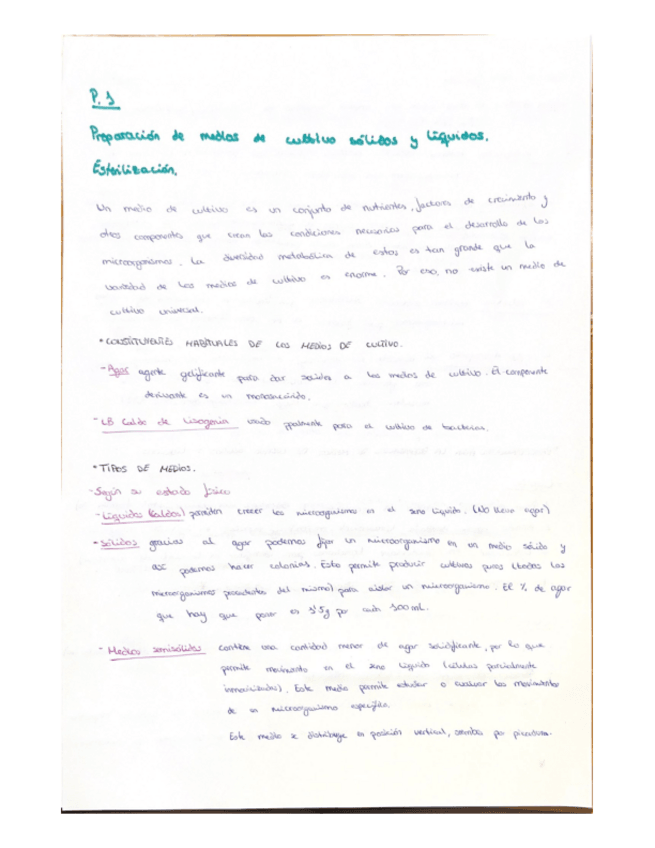 P. 1
Preparación de medios de cultivo sólidos y líquidos.
Esterilización.
Un medio de cultivo es un conjunto de nutrientes, factores de crecimiento y
otros componentes que crean las condiciones necesarias para el desarrollo de los
microorganismos. La diversidad metabólica de estos es tan grande que la
variedad de los medios de cultivo es enorme. Por eso, no existe un medio de
cultivo universal.
• CONSTITUYENTES HABITUALES DE LOS MEDIOS DE CULTIVO.
- Agar agente gelificante para dar solidez a los medios de cultivo. El componente
es un
- LB Caldo de Lisogenia usado ppalmente para el cultivo de bacterias.
• TIPOS DE MEDIOS.
- Según su estado físico
- Líquidos (caldos) permiten crecer los microorganismos en el seno líquido. (No lleva agar)
- Sólidos gracias al agar podemos fijar un microorganismo en un medio sólido y
así podemos hacer colonias. Esto permite producir cultivos puros (todos los
microorganismos procedentes del mismo) para aislar un microorganismo. El % de agar
que hay que poner es 1'5g por cada 100 mL.
- Medios semisólidos contiene una cantidad menor de agar solidificante, por lo que
permite movimiento en el seno líquido (células parcialmente
inmovilizadas). Este medio permite estudiar o evaluar los movimientos
de un microorganismo específico.
Este medio se distribuye en posición vertical, siembra por picadura.